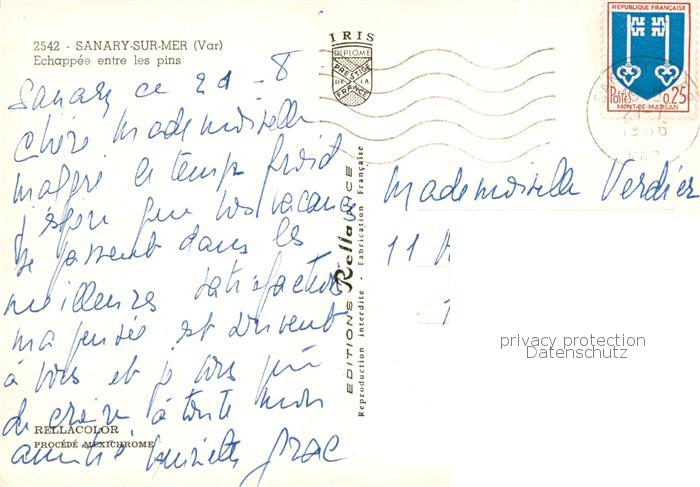 2542 - SANARY-SUR-MER (Var)
Echappée entre les pins
Sanary ce 21 - 8
Chère Mademoiselle
malgré le temps froid
j'espère que vos vacances
se passent dans les
meilleures satisfactions
ma pensée est souvent
à vous et je vous prie
de croire à toute mon
amitié
RELLACOLOR
PROCÉDÉ MEXICHROME
IRIS
DIPLOME
PRESTIGE
DE LA
FRANCE
EDITIONS Rella NICE
Reproduction interdite - Fabrication Française
REPUBLIQUE FRANÇAISE
POSTES 0,25
MONT-DE-MARSAN
1966
VAR
Mademoiselle Verdier
11
privacy protection
Datenschutz